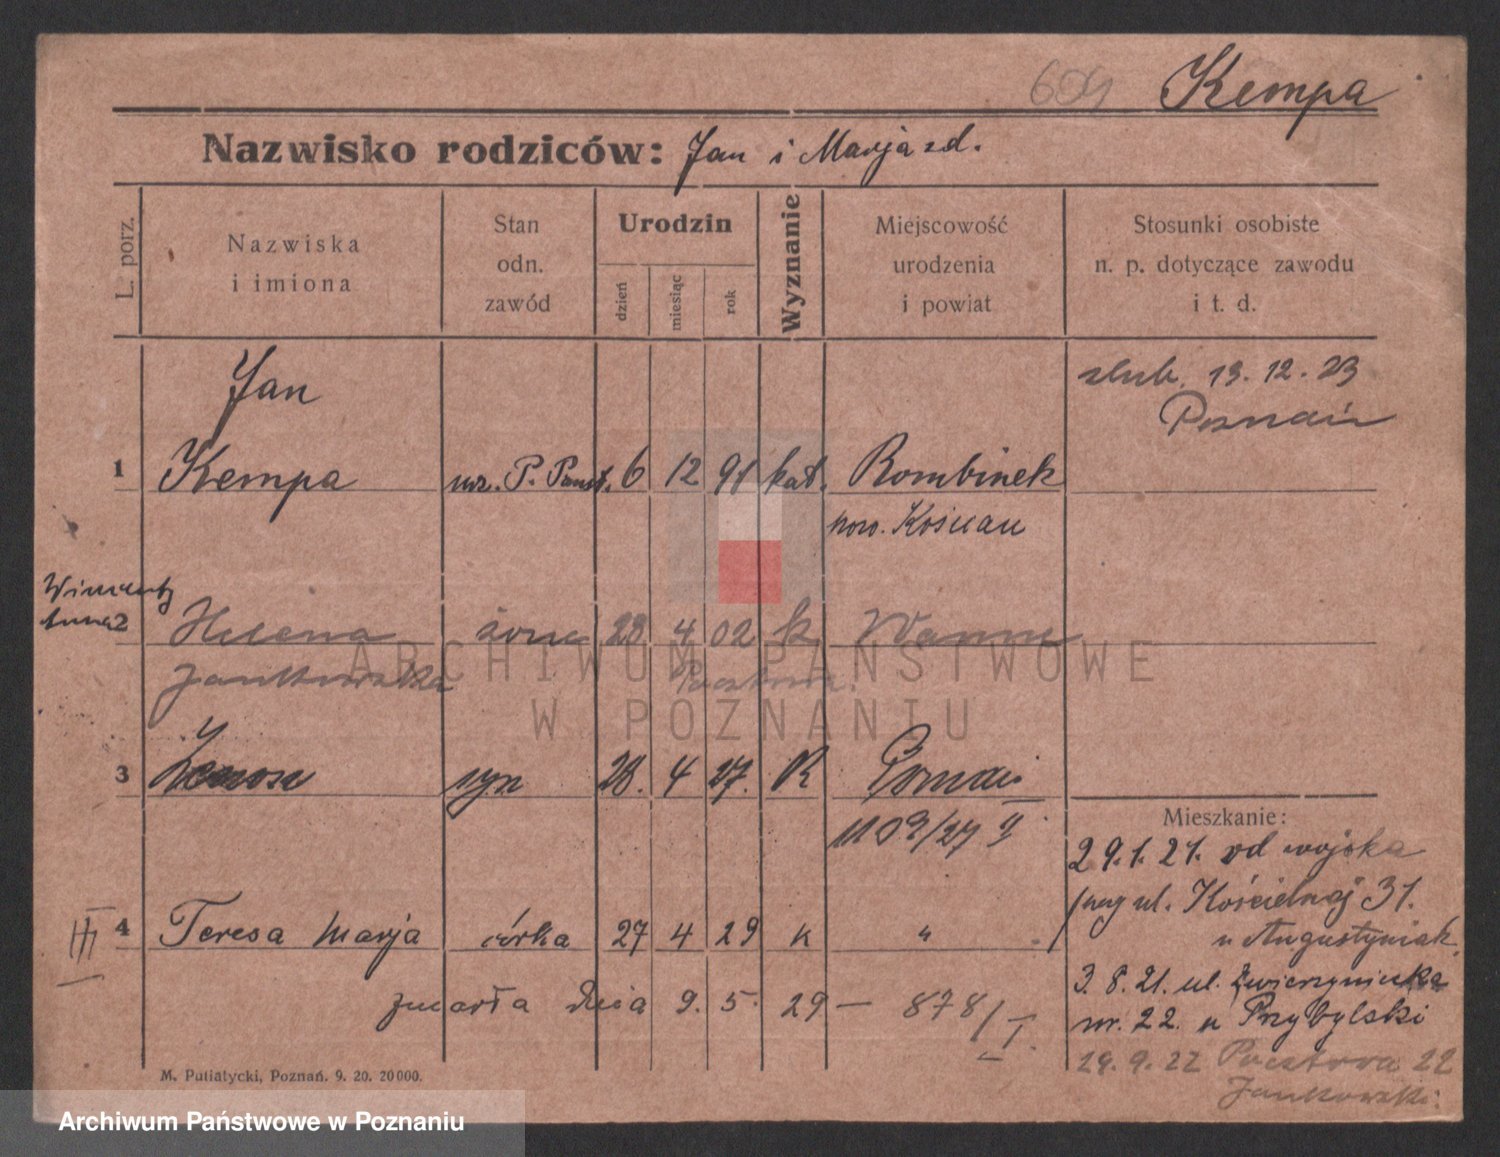 609 Kempa
Nazwisko rodziców: Jan i Marja zd.
L. porz.
Nazwiska
i imiona
Stan
odn.
zawód
Urodzin
dzień
miesiąc
rok
Wyznanie
Miejscowość
urodzenia
i powiat
Stosunki osobiste
n. p. dotyczące zawodu
i t. d.
Jan
ślub. 13.12.23
Poznań
1 Kempa urz. P. Państ. 6 12 91 kat. Rombinek
pow. Kościan
2 Helena żona 28 4 02 k. Wanne
Jankowska Pocztowa.
3 Zenon syn 28. 4 27. R Poznań
1109/27 II
Mieszkanie:
29.1.21. od wojska
przy ul. Kościelnej 31.
u Augustyniak
4 Teresa Marja córka 27 4 29 k "
3.8.21. ul. Zwierzyniecka
nr. 22. u Przybylski
zmarła dnia 9. 5. 29 — 878/I.
29.9.22 Pocztowa 22
Jankowski.
M. Putiatycki, Poznań. 9. 20. 20000.
ARCHIWUM PAŃSTWOWE
W POZNANIU
Archiwum Państwowe w Poznaniu